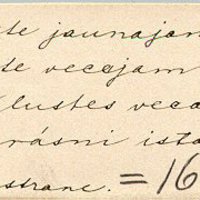 te jaunajam
te vecajam
klustes veca
krāsni ista
strane. = 16